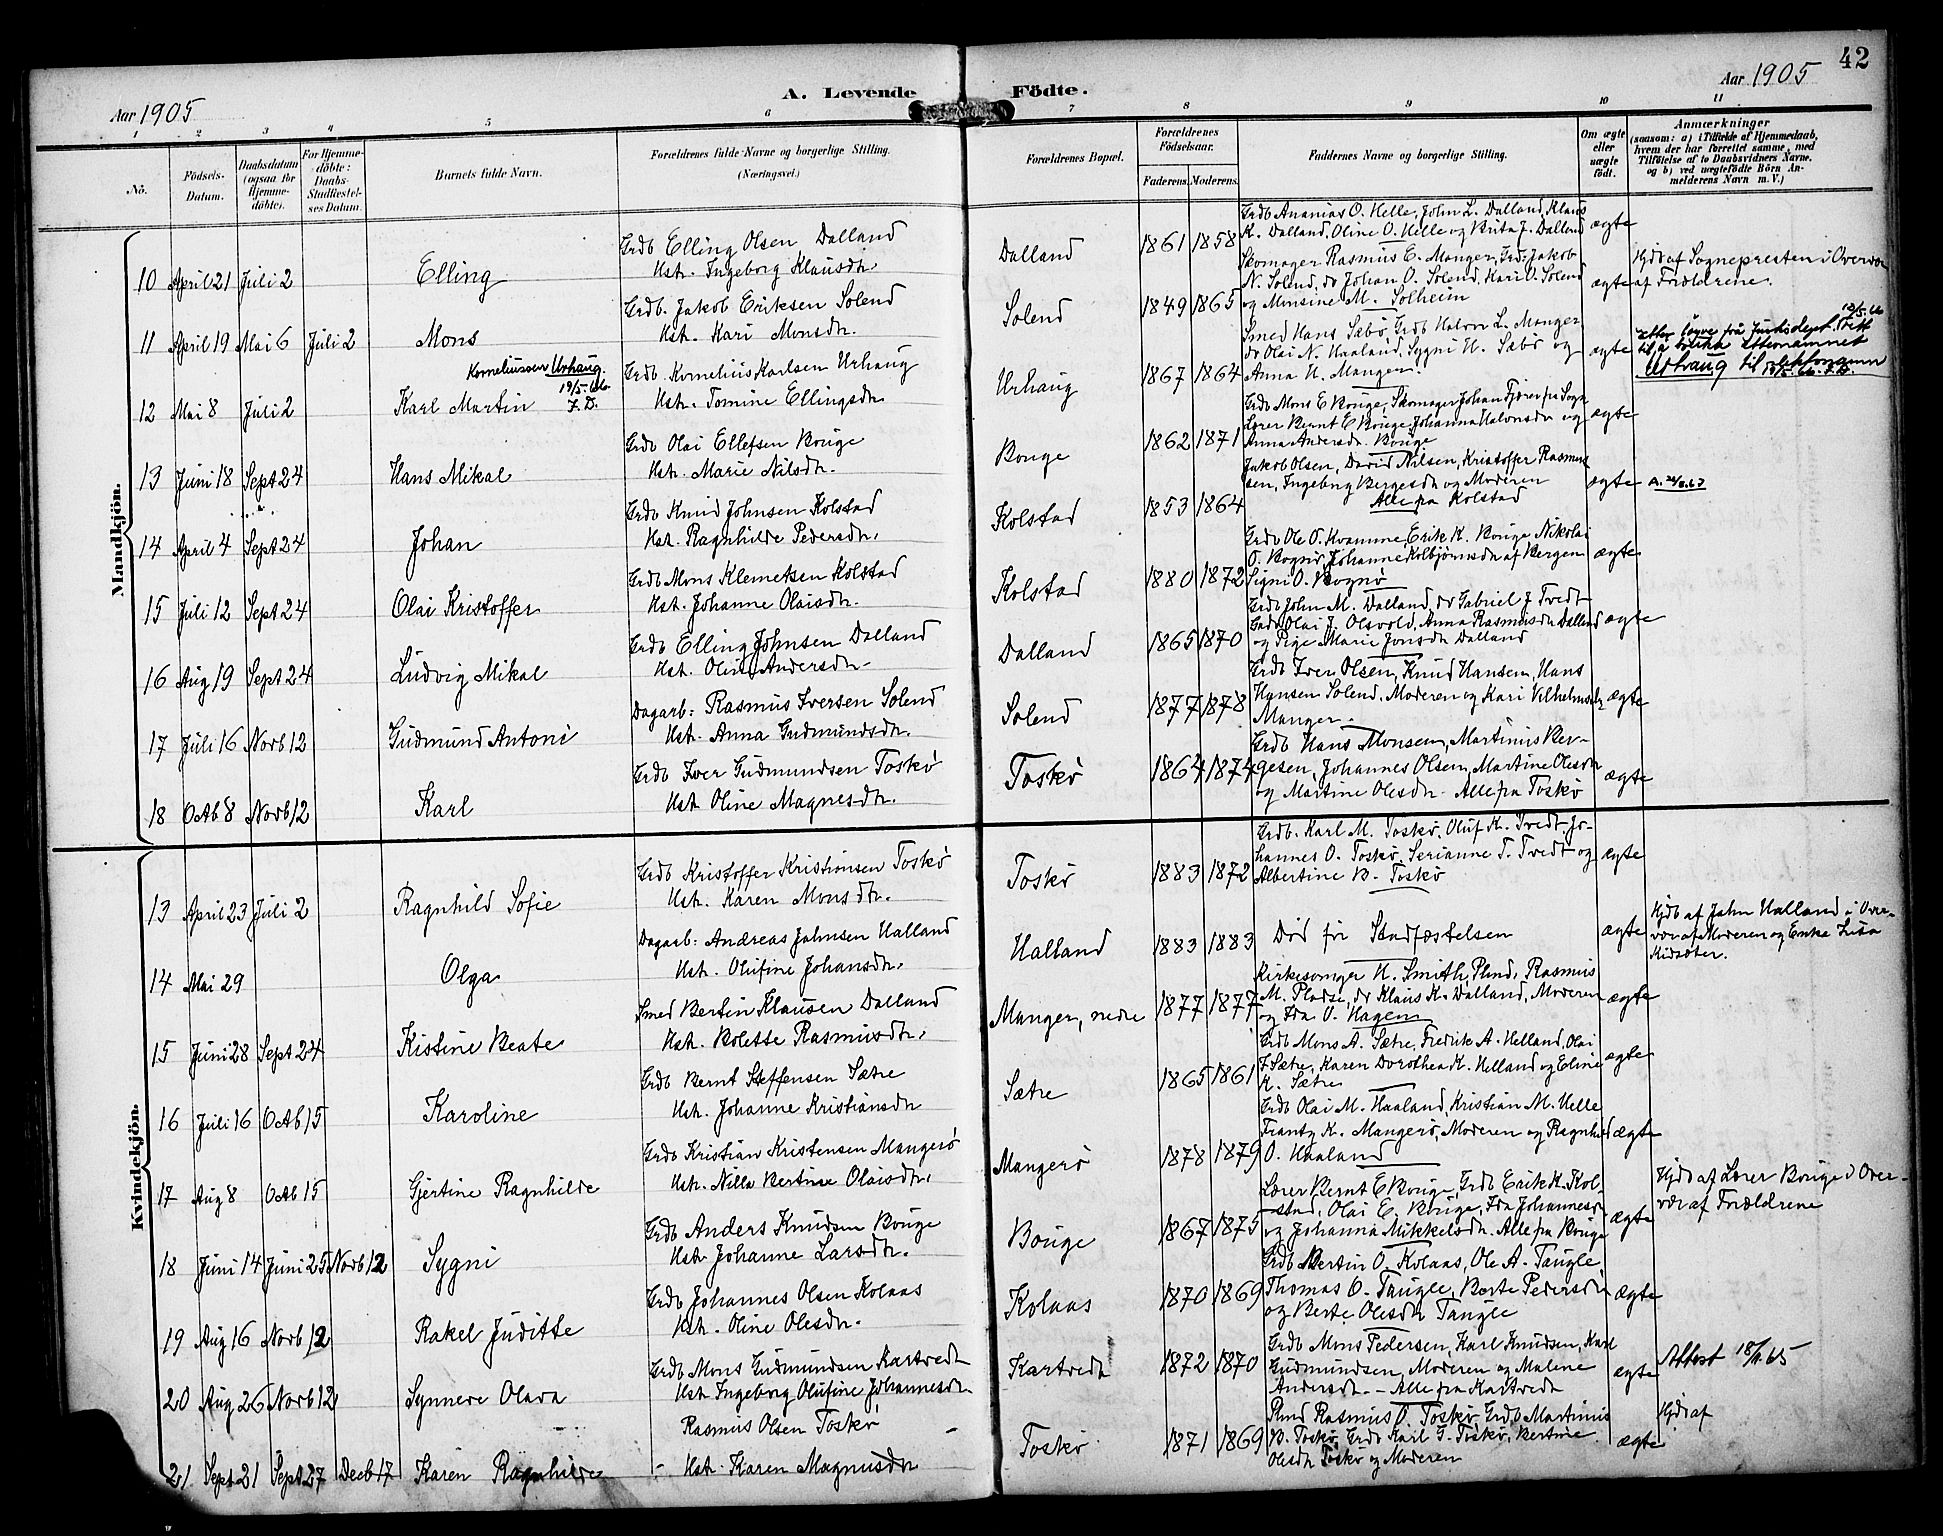 42
Aar 1905
A. Levende Födte.
Aar 1905
1 2 3 4 5 6 7 8 9 10 11
No.
Födsels-Datum.
Daabsdatum (ogsaa for Hjemme-döbte).
For Hjemme-döbte: Daabs-Stadfæstel-ses Datum.
Barnets fulde Navn.
Forældrenes fulde Navne og borgerlige Stilling. (Næringsvei.)
Forældrenes Bopæl.
Forældrenes Födselsaar.
Faderens. Moderens.
Faddernes Navne og borgerlige Stilling.
Om ægte eller uægte födt.
Anmærkninger
(saasom: a) i Tilfælde af Hjemmedaab, hvem der har forrettet samme, med Tilföielse af to Daabsvidners Navne. og b) ved uægtefödte Börn An-melderens Navn m. V.)
Mandkjön.
10 April 21 Juli 2 Elling
Grdb Elling Olsen Dalland
Hst. Ingeborg Klausdtr.
Dalland 1861 1858
Grdb Ananias O. Helle, John L. Dalland, Klaus
K. Dalland, Oline O. Helle og Brita J. Dalland
ægte
11 April 19 Mai 6 Juli 2 Mons
Grdb. Jakob Eriksen Solend
Hst. Kari Monsdtr.
Solend 1849 1865
Skomager Rasmus E. Manger, Grd: Jakob
N. Solend, do Johan O. Solend, Kari O. Solend
og Monsine M. Solheim
ægte
Hjdb af Sognepresten i Overvær
af Forældrene.
12 Mai 8 Juli 2 Karl Martin
Korneliussen Urhaug.
19/5-66. J. D.
Grdb. Kornelius Karlsen Urhaug
Hst. Tomine Ellingsdtr.
Urhaug 1867 1864
Smed Hans Sæbø, Grdb Halvor L. Manger
do Olai N. Haaland, Sygni H. Sæbø og
Anna H. Manger.
ægte
12/5.66
Etter løyve frå Justisdept.
til å brikk etternamnet
Urhaug til slektsnamn
13 Juni 18 Sept 24 Hans Mikal
Grdb Olai Ellefsen Bouge
Hst. Marie Nilsdtr.
Bouge 1862 1871
Grdb Mons E Bouge, Skomager Johan Fjærei fra Sogn
Lærer Bernt E Bouge, Johanna Halvorsdtr og
Anna Andersdtr Bouge
ægte
14 April 4 Sept 24 Johan
Grdb Knud Johnsen Kolstad
Hst. Ragnhilde Pedersdtr.
Kolstad 1853 1864
Jakob Olsen, David Nilsen, Kristoffer Rasmus
sen, Ingeborg Bergesdtr og Moderen
Alle fra Kolstad
ægte
15 Juli 12 Sept 24 Olai Kristoffer
Grdb Mons Klemetsen Kolstad
Hst. Johanne Olaisdtr.
Kolstad 1880 1872
Grdb Ole O. Kvamme, Erik K. Bouge Nikolai
O. Bognø, Johanne Kolbjørnsdtr af Bergen
Signi O. Bognø
ægte
16 Aug 19 Sept 24 Ludvig Mikal
Grdb Elling Johnsen Dalland
Hst. Oline Andersdtr
Dalland 1865 1870
Grdb John M. Dalland, do Gabriel J Tvedt
Gadr Olai J. Olsvold, Anna Rasmusdtr Dalland
og Pige Marie Jonsdtr Dalland
ægte
17 Juli 16 Novb 12 Gudmund Antoni
Dagarb: Rasmus Iversen Solend
Hst. Anna Gudmundsdtr.
Solend 1877 1878
Grdb Iver Olsen, Knud Hansen, Hans
Hansen Solend, Moderen og Kari Vilhelmsdtr
Manger
ægte
18 Oktb 8 Novb 12 Karl
Grdb Iver Gudmundsen Toskø
Hst. Oline Magnesdtr.
Toskø 1864 1874
Grdb Hans Monsen, Martinus Ber-
gesen, Johannes Olsen, Martine Olesdtr
og Martine Olesdtr Alle fra Toskø
ægte
Kvindekjön.
13 April 23 Juli 2 Ragnhild Sofie
Grdb Kristoffer Kristiansen Toskø
Hst. Karen Monsdtr.
Toskø 1883 1872
Grdb. Karl M. Toskø, Oluf K. Tvedt, Jo-
hannes O. Toskø, Serianne T. Tvedt og
Albertine B. Toskø
ægte
14 Mai 29 Olga
Dagarb: Andreas Johnsen Halland
Hst. Olufine Johansdtr.
Halland 1883 1883
Død før Stadfæstelsen
ægte
Hjdb af John Halland i Over-
vær af Moderen og Enke Lisa
Kidsæter.
15 Juni 28 Sept 24 Kistine Beate
Smed Bertin Klausen Dalland
Hst. Bolette Rasmusdtr.
Manger, nedre 1877 1877
Kirkesanger H. Smith, Plmd, Rasmus
M. Pladse, do Klaus K. Dalland, Moderen
og Ida O. Hagen
ægte
16 Juli 16 Oktb 15 Karoline
Grdb Bernt Steffensen Sætre
Hst. Johanne Kristiansdtr
Sætre 1865 1861
Grdb Mons A. Sætre, Fredrik A. Helland, Olai
I Sætre, Karen Dorothea K. Helland og Eline
K. Sætre
ægte
17 Aug 8 Oktb 15 Gjertine Ragnhilde
Grdb Kristian Kristensen Mangerø
Hst. Nilla Bertine Olaisdtr.
Mangerø 1878 1879
Grdb Olai M. Haaland, Kristian M. Helle
Frantz K. Mangerø, Moderen og Ragnhild
O. Haaland
ægte
18 Juni 14 Juni 25 Novb 12 Sygni
Grdb Anders Knudsen Bouge
Hst. Johanne Larsdtr.
Bouge 1867 1875
Lærer Bernt E Bouge, Grdb Erik K. Kol-
stad, Olai E. Bouge, Ida Johannesdtr
og Johanna Mikkelsdtr. Alle fra Bouge
ægte
Hjdb af Lærer Bouge i Over-
vær af Forældrene
19 Aug 16 Novb 12 Rakel Juditte
Grdb Johannes Olsen Kolaas
Hst. Oline Olesdtr.
Kolaas 1870 1869
Grdb Bertin O. Kolaas, Ole A. Taugle,
Thomas O. Taugle, Berte Pedersdtr
og Berte Olesdtr Taugle
ægte
20 Aug 26 Novb 12 Synneve Olava
Grdb Mons Gudmundsen Kartvedt
Hst Ingeborg Olufine Johannesdtr
Kartvedt 1872 1870
Grdb Mons Pedersen, Karl Knudsen, Karl
Gudmundsen, Moderen og Malene
Andersdtr. - Alle fra Kartvedt
ægte
Attest 18/1 65
21 Sept 21 Sept 27 Decb 17 Karen Ragnhilde
Rasmus Olsen Toskø
Hst. Karen Magnusdtr
Toskø 1871 1869
Plmd Rasmus O. Toskø, Grdb Martinus
B. Toskø, Grdb Karl G. Toskø, Bertine
Olesdtr Toskø og Moderen
ægte
Hjdb af